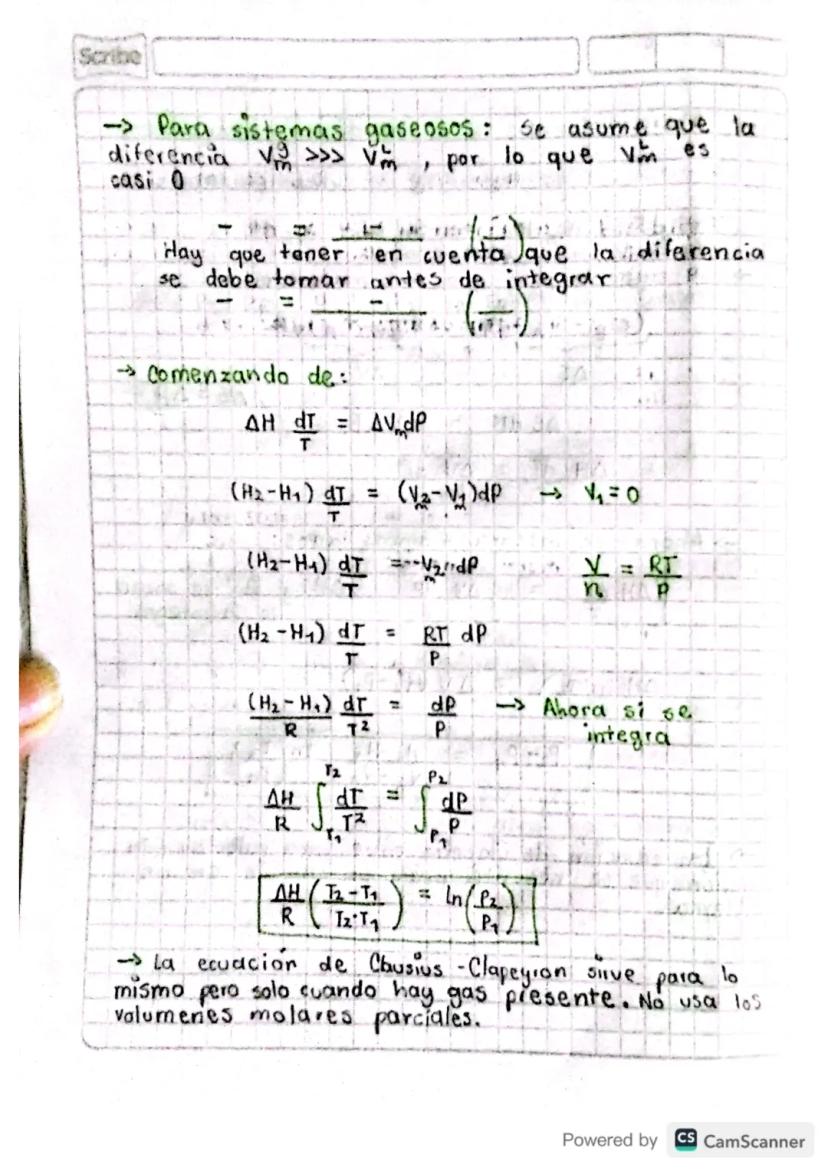 Scribe
→ Para sistemas gaseosos: Se asume que la
diferencia V_m^g >>> V_m^L, por lo que V_m^L es
casi 0
Hay que tener en cuenta que la diferencia
se debe tomar antes de integrar
→ Comenzando de:
ΔH dT/T = ΔV_m dP
(H2-H1) dT/T = (V_m2-V_m1)dP → V1=0
(H2-H1) dT/T = V_m2 dP V/n = RT/P
(H2-H1) dT/T = RT/P dP
(H2-H1)/R dT/T² = dP/P → Ahora si se
integra
ΔH/R ∫_T1^T2 dT/T² = ∫_P1^P2 dP/P
ΔH/R (T2-T1/T2·T1) = ln(P2/P1)
→ La ecuación de Clausius-Clapeyron sirve para lo
mismo pero solo cuando hay gas presente. No usa los
volumenes molares parciales.
Powered by CS CamScanner